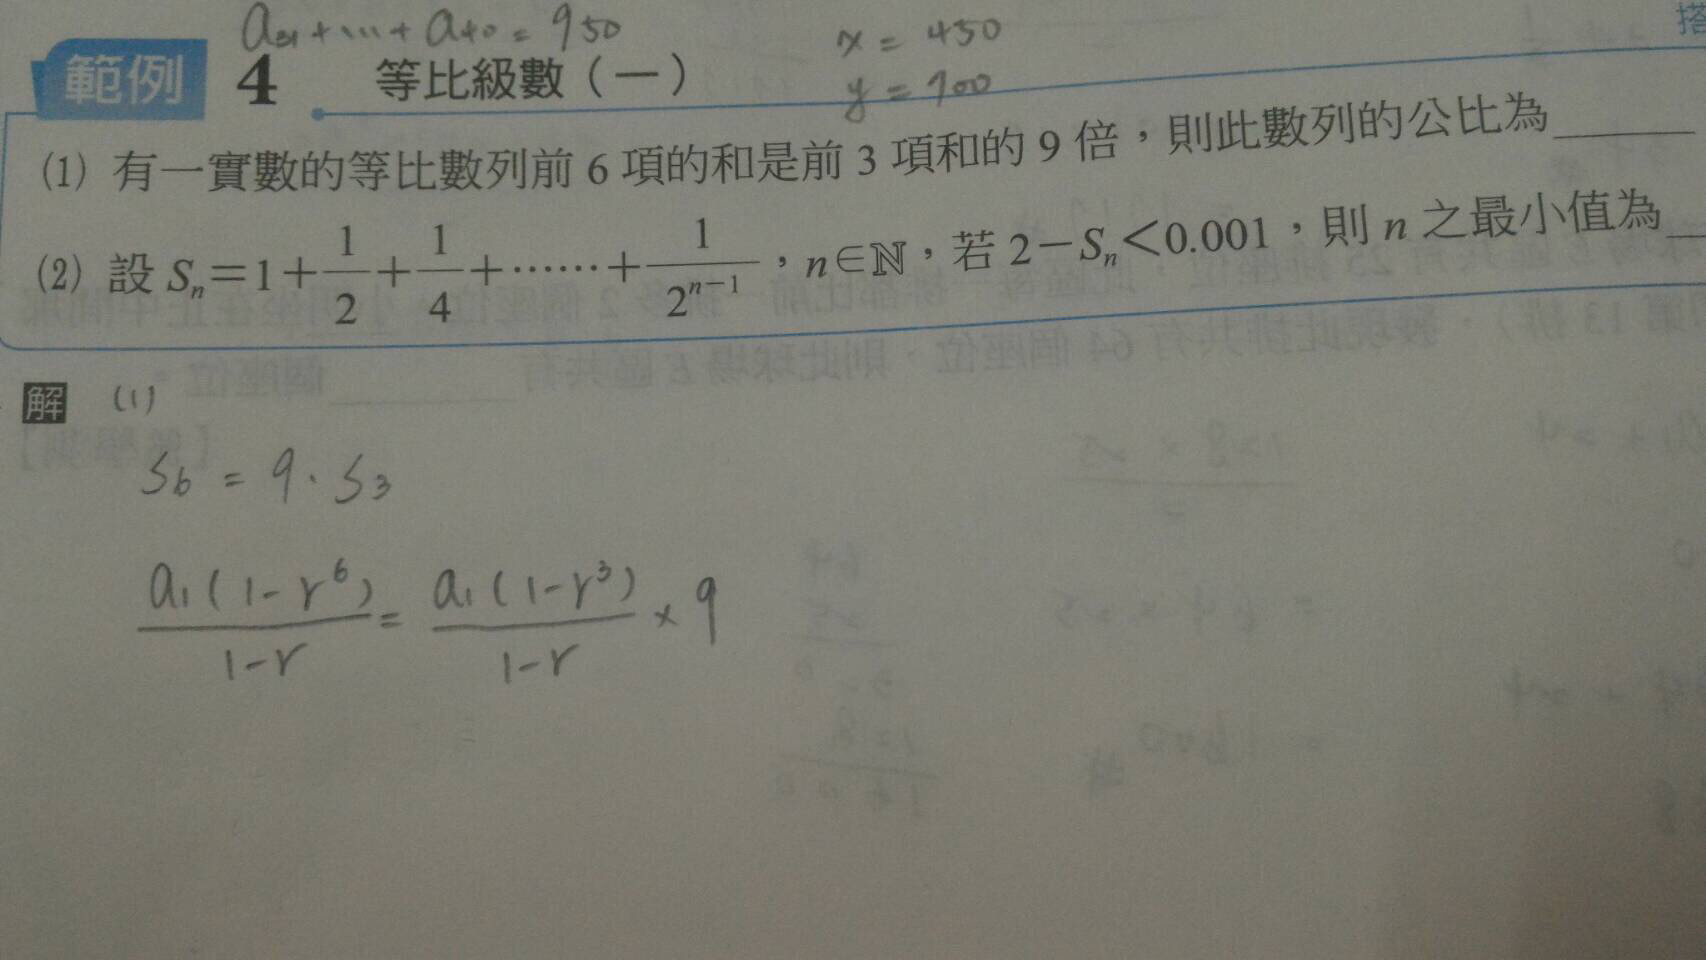 a₃₁+…+a₄₀=950
x=450
y=700
範例 4 等比級數(一)
搭
(1) 有一實數的等比數列前 6 項的和是前 3 項和的 9 倍,則此數列的公比為______
(2) 設 Sₙ=1+1/2+1/4+……+1/2ⁿ⁻¹,n∈ℕ,若 2-Sₙ<0.001,則 n 之最小值為__
解 (1)
S₆ = 9·S₃
a₁(1-r⁶)/(1-r) = a₁(1-r³)/(1-r) × 9